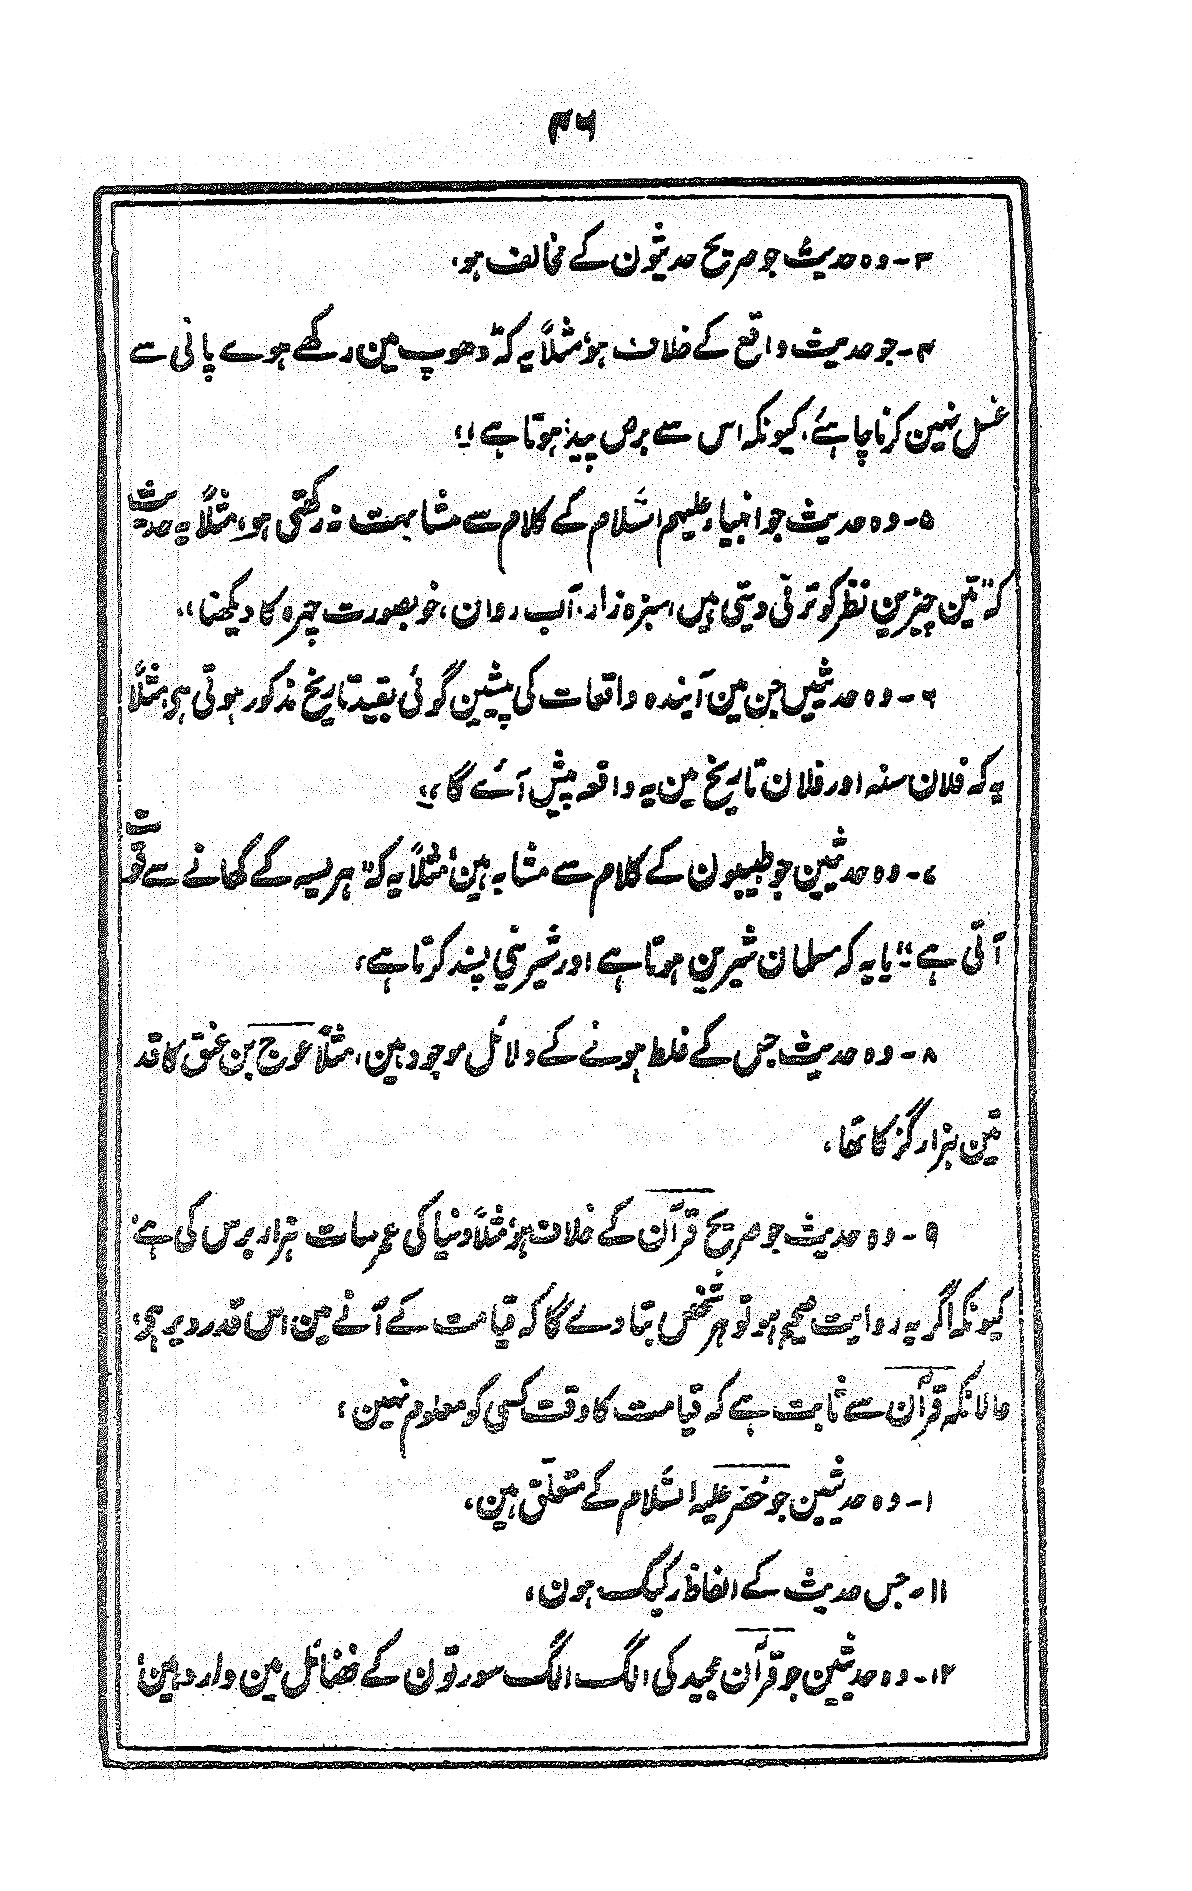 ۴۶
۳- وہ حدیث جو صریح حدیثون کے مخالف ہو،
۴- جو حدیث واقع کے خلاف ہو، مثلاً یہ کہ "دھوپ مین رکھے ہوے پانی سے
غسل نہین کرنا چاہئے، کیونکہ اس سے برص پیدا ہوتا ہے"،
۵- وہ حدیث جو انبیاء علیہم السّلام کے کلام سے مشابہت نہ رکھتی ہو، مثلاً یہ حدیث
کہ "تین چیزین نظر کو ترقی دیتی ہیں، سبزہ زار، آب روان، خوبصورت چہرہ کا دیکھنا"،
۶- وہ حدثیں جن مین آیندہ واقعات کی پیشین گوئی بقید تاریخ مذکور ہوتی ہی، مثلاً
یہ کہ فلان سنہ اور فلان تاریخ مین یہ واقعہ پیش آئے گا"،
۷- وہ حدثین جو طبیبون کے کلام سے مشابہ ہین، مثلاً یہ کہ "ہریسہ کے کھانے سے قوت
آتی ہے" یا یہ کہ مسلمان شیرین ہوتا ہے اور شیرینی پسند کرتا ہے،
۸- وہ حدیث جس کے غلط ہونے کے دلائل موجود ہین، مثلاً عوج بن عنق کا قد
تین ہزار گز کا تھا،
۹- وہ حدیث جو صریح قرآن کے خلاف ہو، مثلاً دنیا کی عمر سات ہزار برس کی ہے،
کیونکہ اگر یہ روایت صحیح ہو تو ہر شخص بتا دے گا کہ قیامت کے آنے مین اس قدر دیر ہی،
حالانکہ قرآن سے ثابت ہے کہ قیامت کا وقت کسی کو معلوم نہین،
۱- وہ حدثین جو خضر علیہ السّلام کے متعلّق ہین،
۱۱- جس حدیث کے الفاظ رکیک ہون،
۱۲- وہ حدیثین جو قرآن مجید کی الگ الگ سورتون کے فضائل مین وارد ہین،